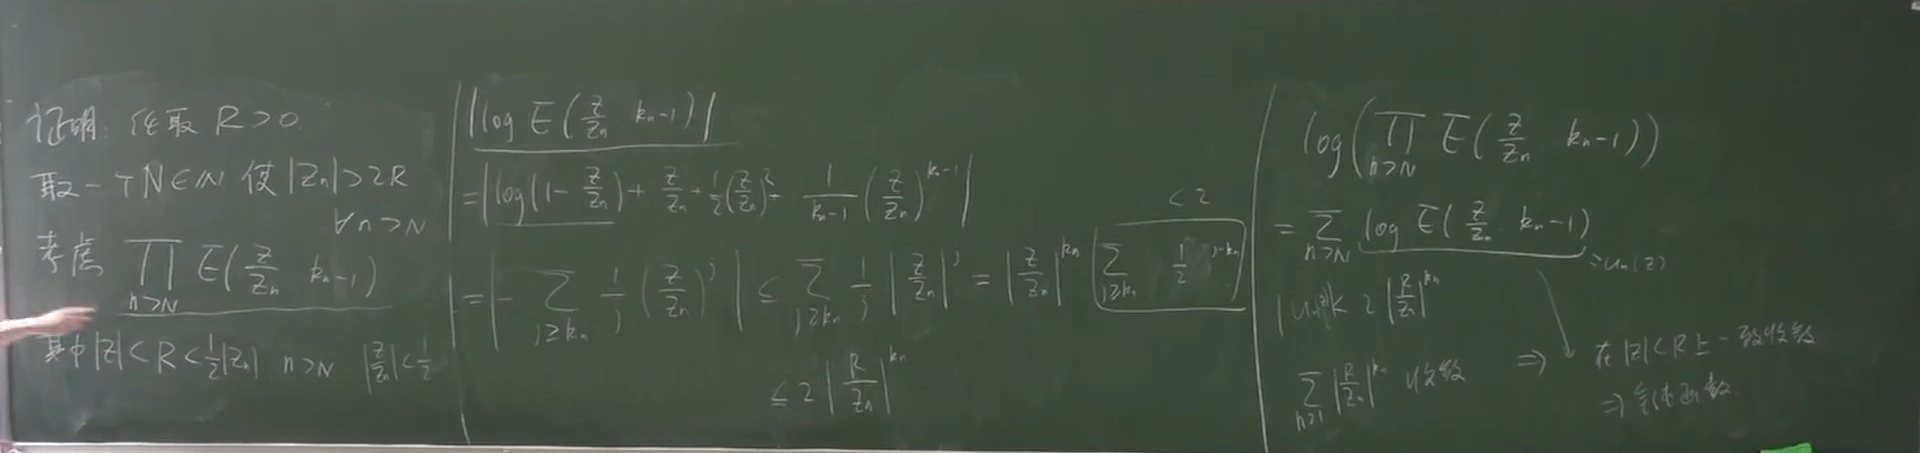 证明: 任取 R>0.
取一个 N∈ℕ 使 |Zn|>2R
∀n>N
考虑 ∏_{n>N} E(z/zn, kn-1)
其中 |z|<R<½|zn| n>N |z/zn|<½
|log E(z/zn, kn-1)|
=|log(1-z/zn)+z/zn+½(z/zn)²+ 1/(kn-1) (z/zn)^{kn-1}|
=|-∑_{j≥kn} 1/j (z/zn)^j| ≤ ∑_{j≥kn} 1/j |z/zn|^j = |z/zn|^{kn} ∑_{j≥kn} ½^{j-kn}
<2
≤2|R/zn|^{kn}
log(∏_{n>N} E(z/zn, kn-1))
=∑_{n>N} log E(z/zn, kn-1)
:=un(z)
|un(z)|<2|R/zn|^{kn}
∑_{n≥1} |R/zn|^{kn} 收敛 ⇒ 在|z|<R上一致收敛
⇒ 解析函数.